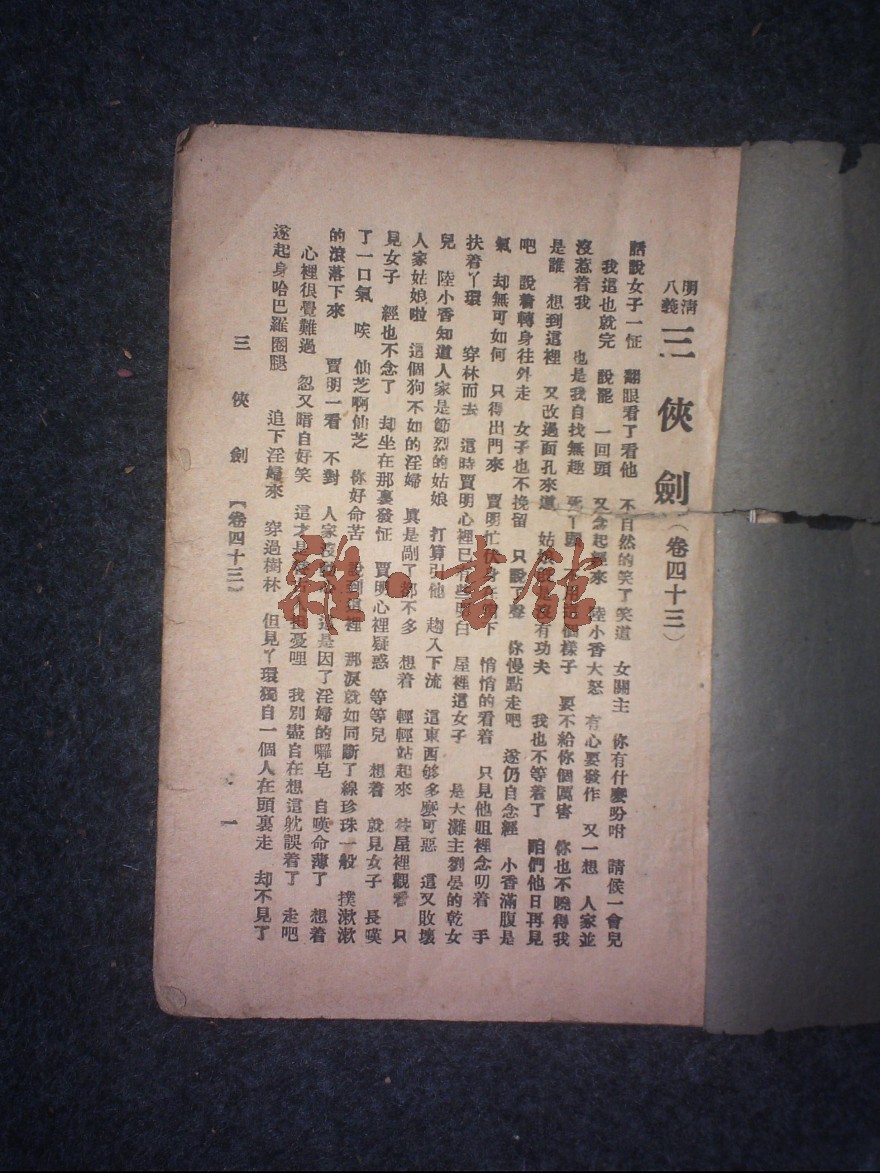 明清
八義
三俠劍(卷四十三)
話說女子一怔 翻眼看了看他 不自然的笑了笑道 女關主 你有什麼吩咐 請候一會兒
我這也就完 說罷 一回頭 又念起經來 陸小香大怒 有心要發作 又一想 人家並
沒惹着我 也是我自找無趣 死丫頭 這個樣子 要不給你個厲害 你也不曉得我
是誰 想到這裡 又改過面孔來道 姑娘 有功夫 我也不等着了 咱們他日再見
吧 說着轉身往外走 女子也不挽留 只說了聲 你慢點走吧 遂仍自念經 小香滿腹是
氣 却無可如何 只得出門來 賈明忙 身在 下 悄悄的看着 只見他咀裡念叨着 手
扶着丫環 穿林而去 這時賈明心裡已有些明白 屋裡這女子 是大灘主劉晏的乾女
兒 陸小香知道人家是節烈的姑娘 打算引他 趨入下流 這東西够多麼可惡 這又敗壞
人家姑娘啦 這個狗不如的淫婦 真是剮了都不多 想着 輕輕站起來 往屋裡觀看 只
見女子 經也不念了 却坐在那裏發怔 賈明心裡疑惑 等等兒 想着 就見女子 長嘆
了一口氣 唉 仙芝啊仙芝 你好命苦 說到這裡 那淚就如同斷了線珍珠一般 撲漱漱
的滾落下來 賈明一看 不對 人家 是因了淫婦的囉皂 自嘆命薄了 想着
心裡很覺難過 忽又暗自好笑 這才是 担憂哩 我別盡自在想這躭誤着了 走吧
遂起身哈巴羅圈腿 追下淫婦來 穿過樹林 但見丫環獨自一個人在頭裏走 却不見了
三俠劍 【卷四十三】 一
雜·書館